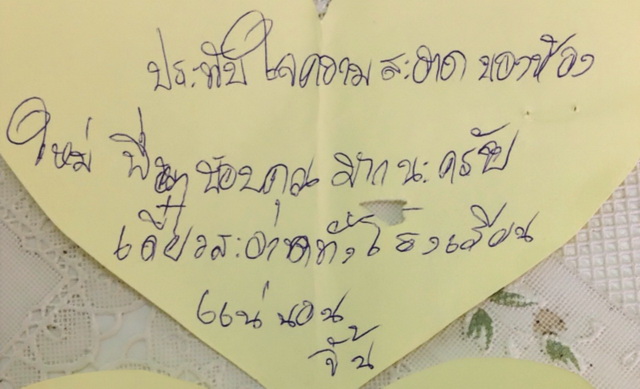 ประทับใจความสะอาดของห้อง
ใหม่ พี่ ขอบคุณมากนะครับ
เดี๋ยวสะอาดทั้งโรงเรียน
แน่นอน